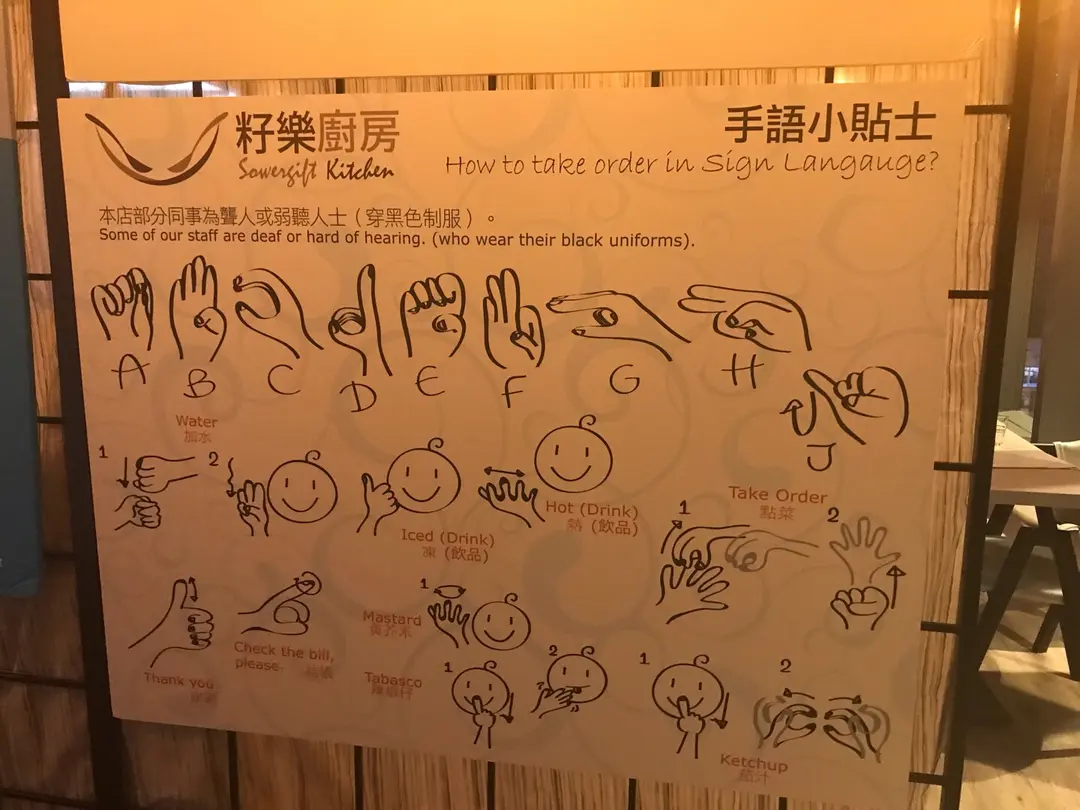 籽樂廚房
Sowergift Kitchen
手語小貼士
How to take order in Sign Langauge?
本店部分同事為聾人或弱聽人士（穿黑色制服）。
Some of our staff are deaf or hard of hearing. (who wear their black uniforms).
A B C D E F G H J
Water
加水
1 2
Iced (Drink)
凍 (飲品)
Hot (Drink)
熱 (飲品)
Take Order
點菜
1 2
Thank you
Check the bill,
please.
Mastard
黃芥末
1
Tabasco
1 2
Ketchup
茄汁
1 2